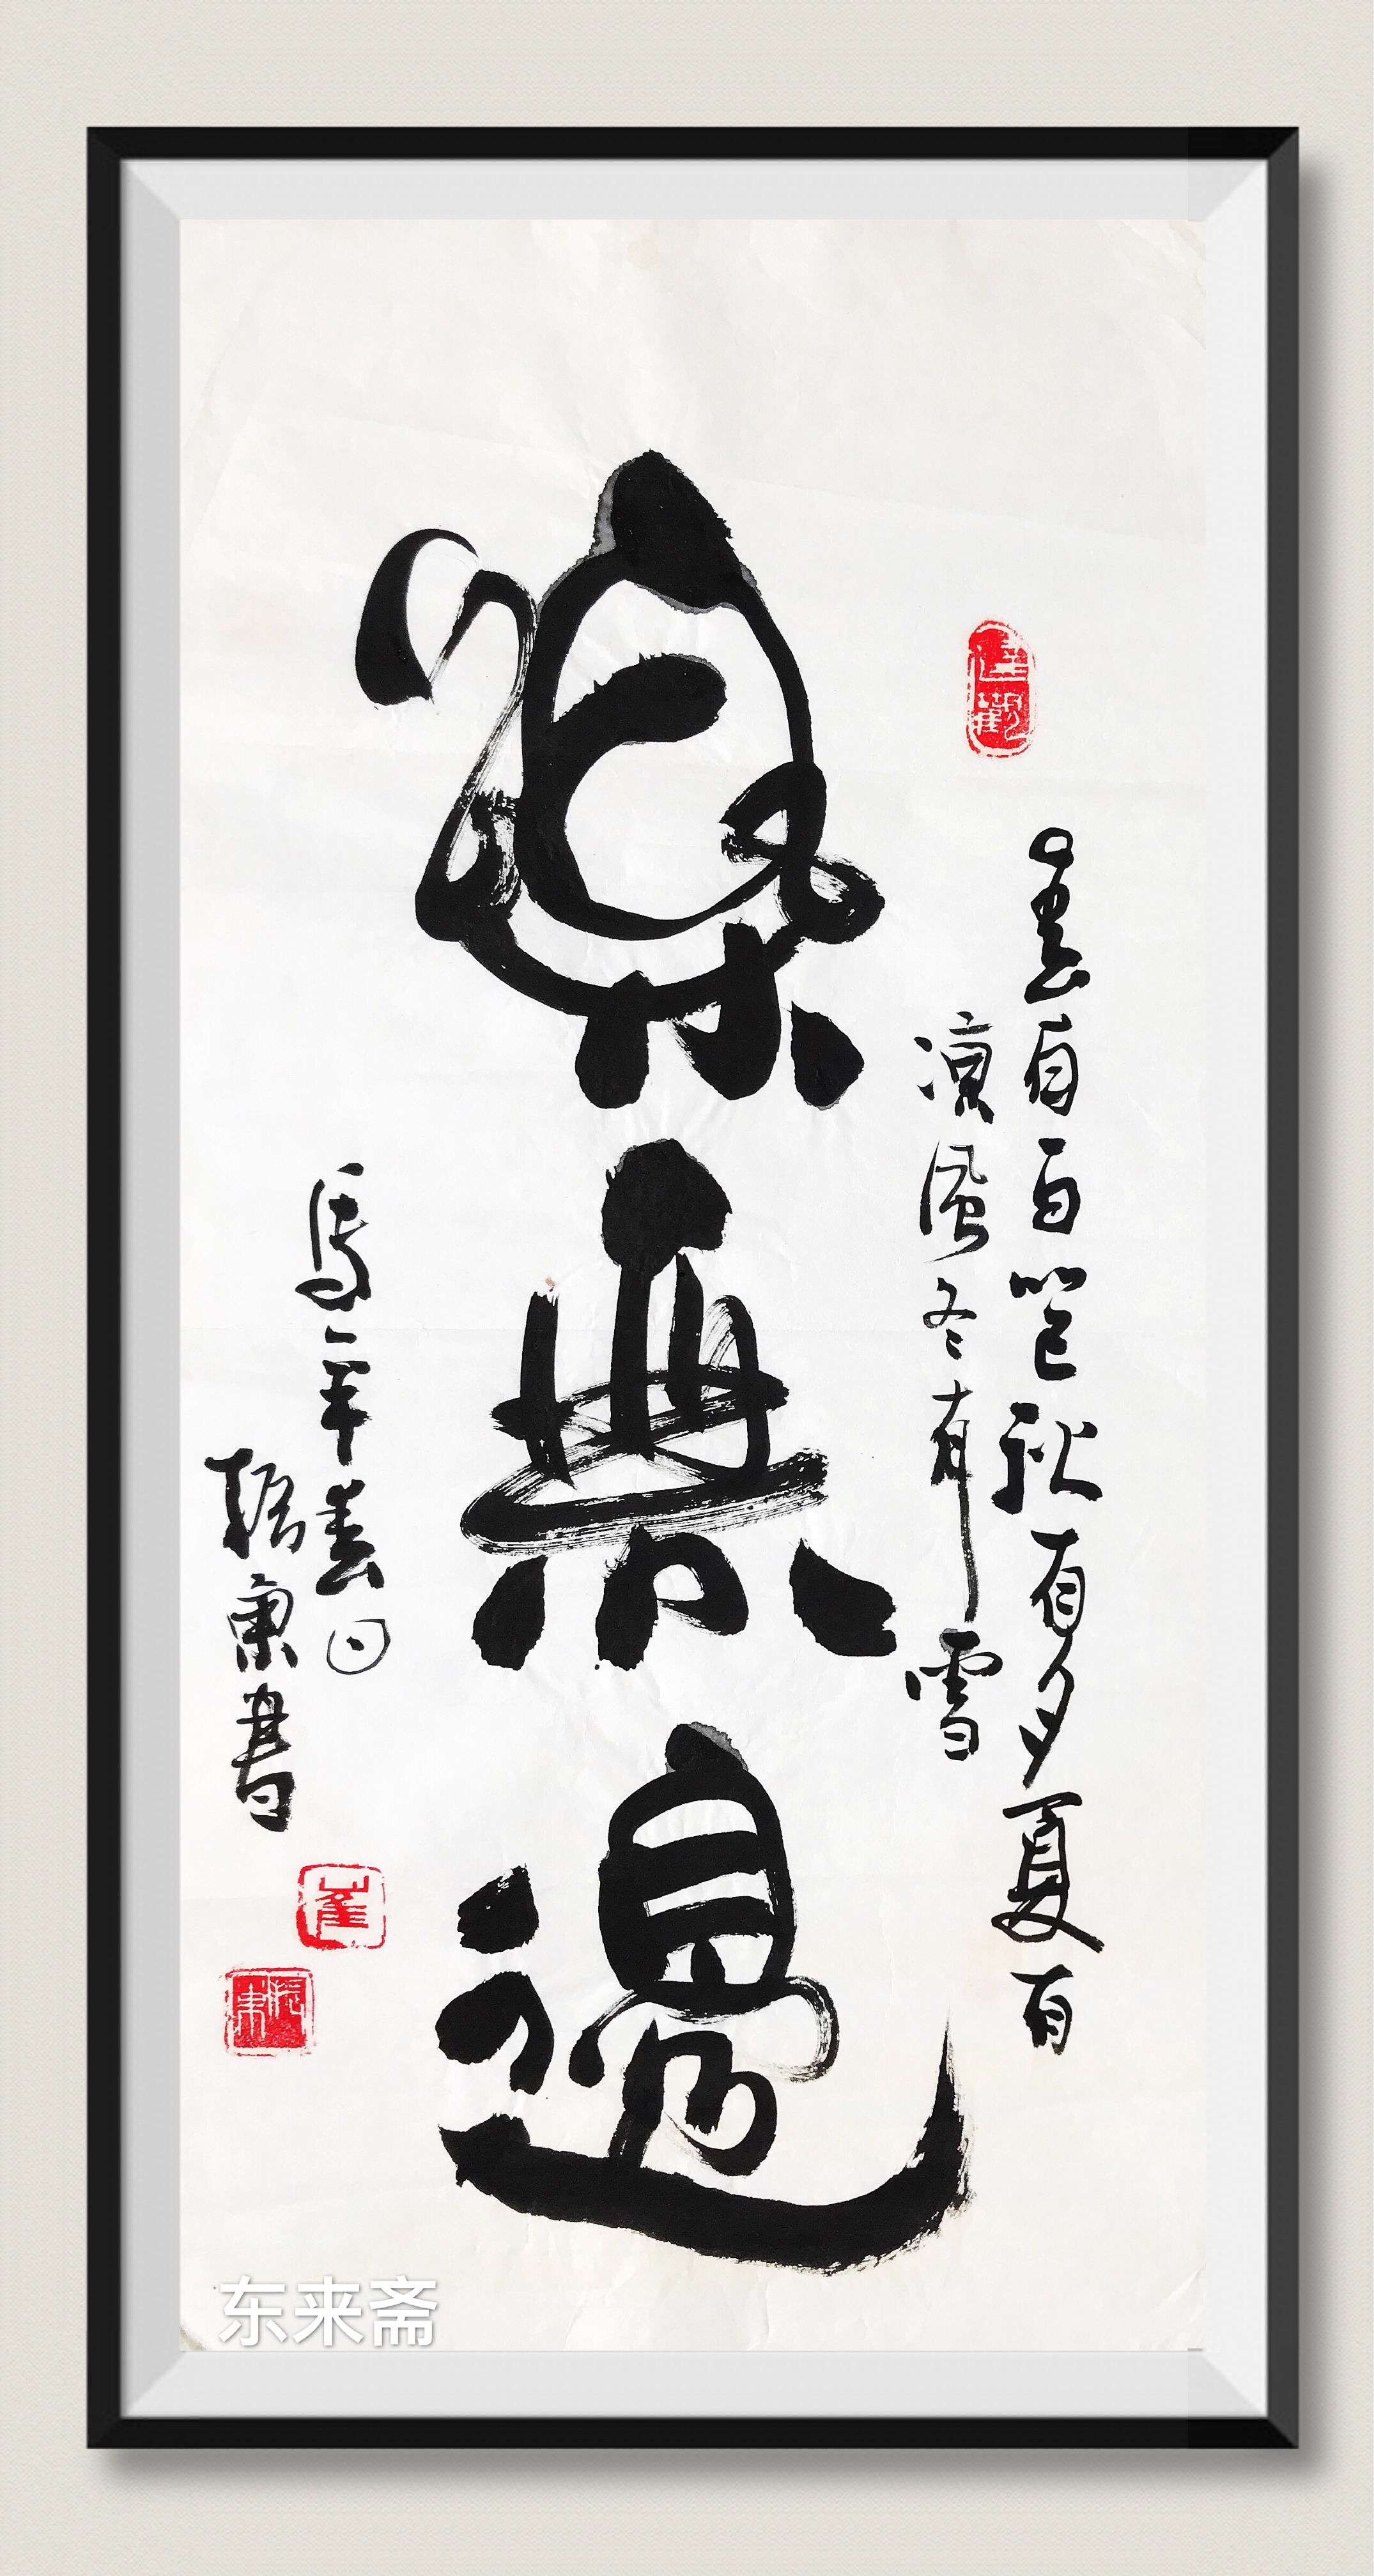 春有百花秋有月夏有
凉風冬有雪
樂無邊
馬年春日
振東書
崔
振東
东来斋